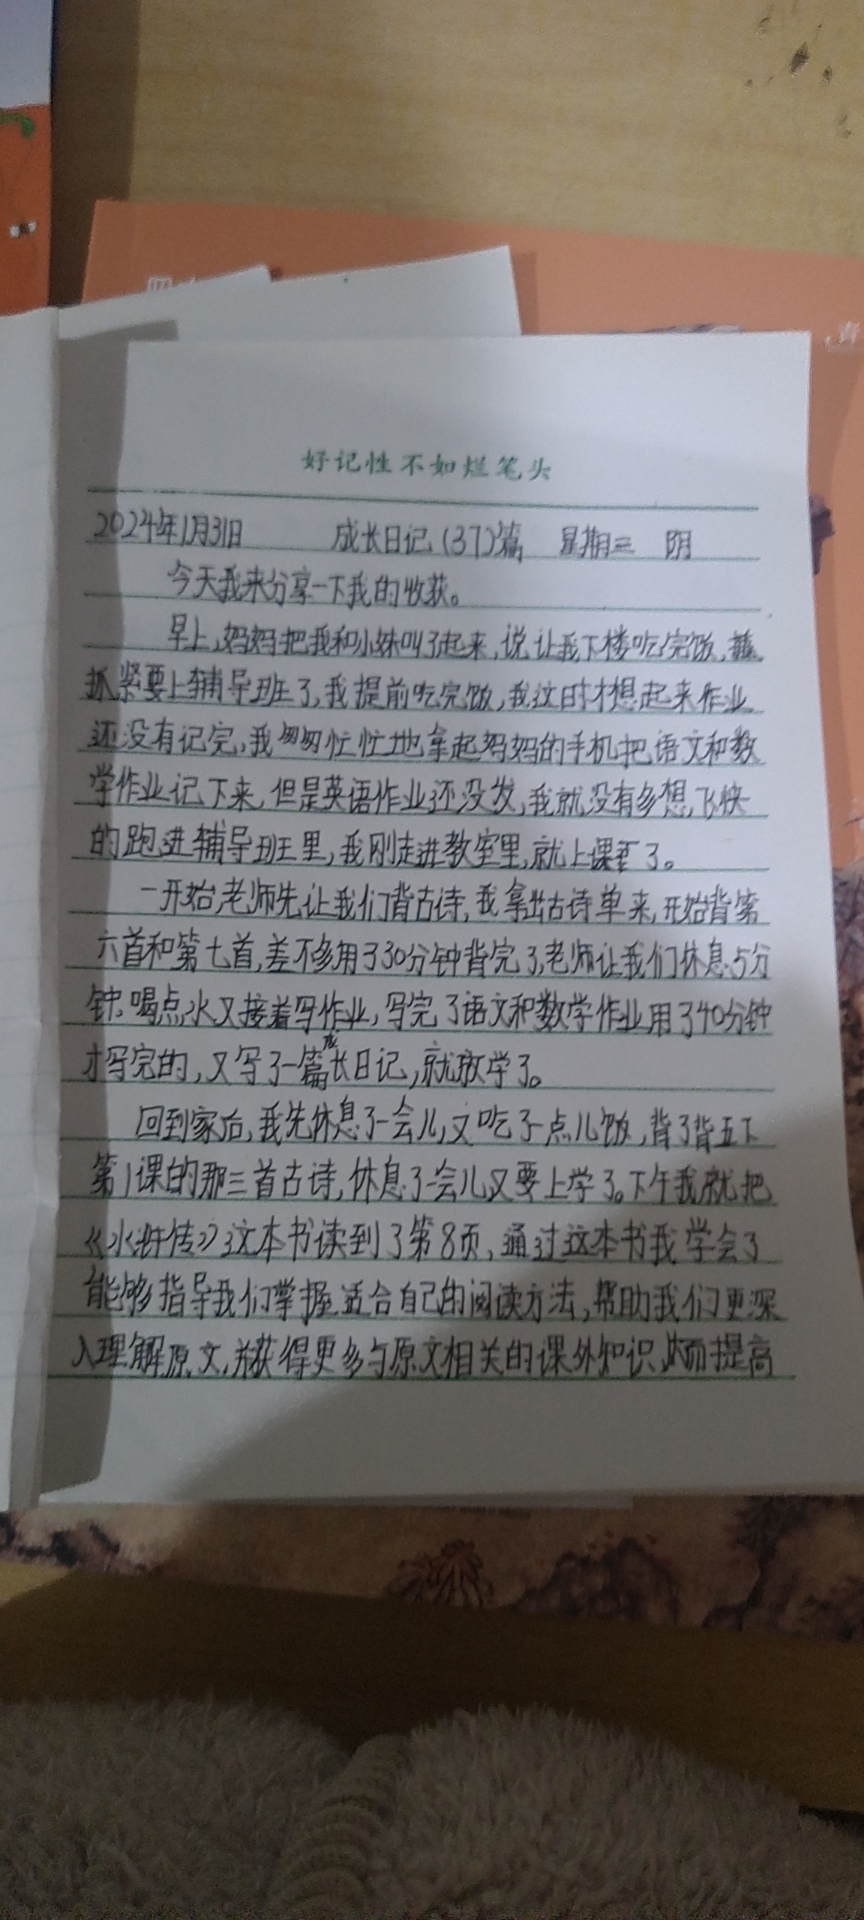 好记性不如烂笔头
2024年1月31日 成长日记(37)篇 星期三 阴
今天我来分享一下我的收获。
早上,妈妈把我和小妹叫了起来,说让我下楼吃完饭,
抓紧要上辅导班了,我提前吃完饭,我这时才想起来作业
还没有记完,我匆匆忙忙地拿起妈妈的手机把语文和数
学作业记下来,但是英语作业还没发,我就没有多想,飞快
的跑进辅导班里,我刚走进教室里,就上课了。
一开始,老师先让我们背古诗,我拿出古诗单来,开始背第
六首和第七首,差不多用了30分钟背完了,老师让我们休息5分
钟,喝点水又接着写作业,写完了语文和数学作业用了40分钟
才写完的,又写了一篇成长日记,就放学了。
回到家后,我先休息了一会儿,又吃了一点儿饭,背了背五下
第1课的那三首古诗,休息了一会儿又要上学了。下午我就把
《水浒传》这本书读到了第8页,通过这本书我学会了
能够指导我们掌握适合自己的阅读方法,帮助我们更深
入理解原文,并获得更多与原文相关的课外知识,从而提高